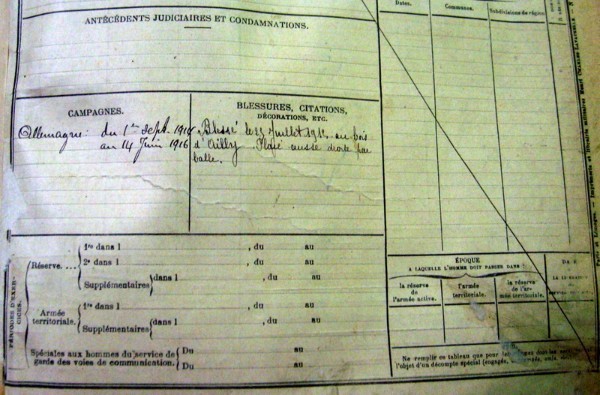 ANTÉCÉDENTS JUDICIAIRES ET CONDAMNATIONS.
Dates.
Communes.
Subdivisions de région
CAMPAGNES.
Allemagne: du 1er Sept. 1914
au 14 Juin 1916
BLESSURES, CITATIONS,
DÉCORATIONS, ETC.
Blessé le juillet au bois
d'Ailly. Plaie cuisse droite par
balle.
PÉRIODES D'EXERCICES.
Réserve....
1re dans l , du au
2e dans l , du au
Supplémentaires dans l , du au
, du au
Armée
territoriale.
1re dans l , du au
Supplémentaires dans l , du au
, du au
Spéciales aux hommes du service de
garde des voies de communication.
Du au
Du au
ÉPOQUE
A LAQUELLE L'HOMME DOIT PASSER DANS :
la réserve
de
l'armée active.
l'armée
territoriale.
la réserve
de l'armée territoriale.
Ne remplir ce tableau que pour les dont les services
l'objet d'un décompte spécial (engagés,